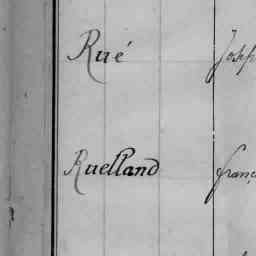 Rué Josep
Ruelland franç